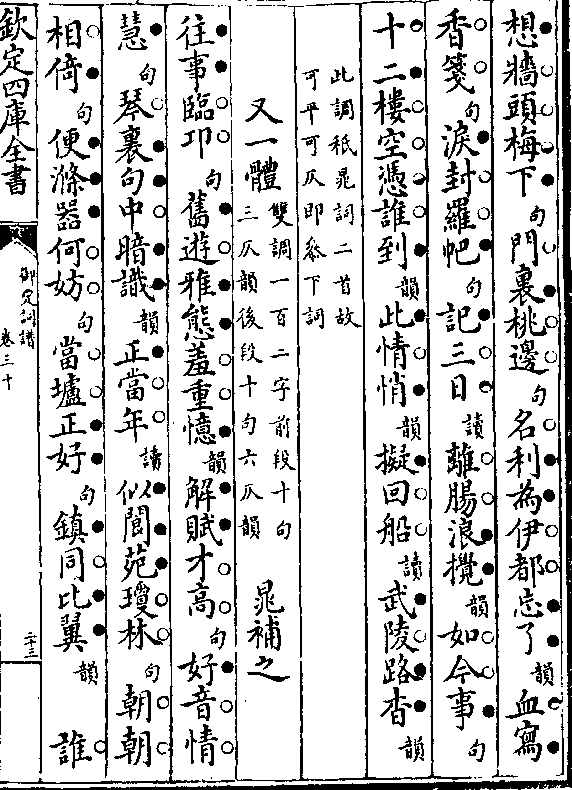 想牆頭梅下句門裏桃邊句名利為伊都忘了韻血寫
香箋句淚封羅帊句記三日讀離腸浪攪韻如今事句
十二樓空憑誰到韻此情悄韻擬回船讀武陵路杳韻
此調秖晁詞二首故
可平可仄即參下詞
又一體 雙調一百二字前段十句
三仄韻後段十句六仄韻 晁補之
往事臨邛句舊遊雅態羞重憶韻解賦才高句好音情
慧句琴裏句中暗識韻正當年讀似閬苑瓊林句朝朝
相倚句便滌器何妨句當壚正好句鎮同比翼韻 誰
欽定四庫全書
御定詞譜
卷三十
二十三